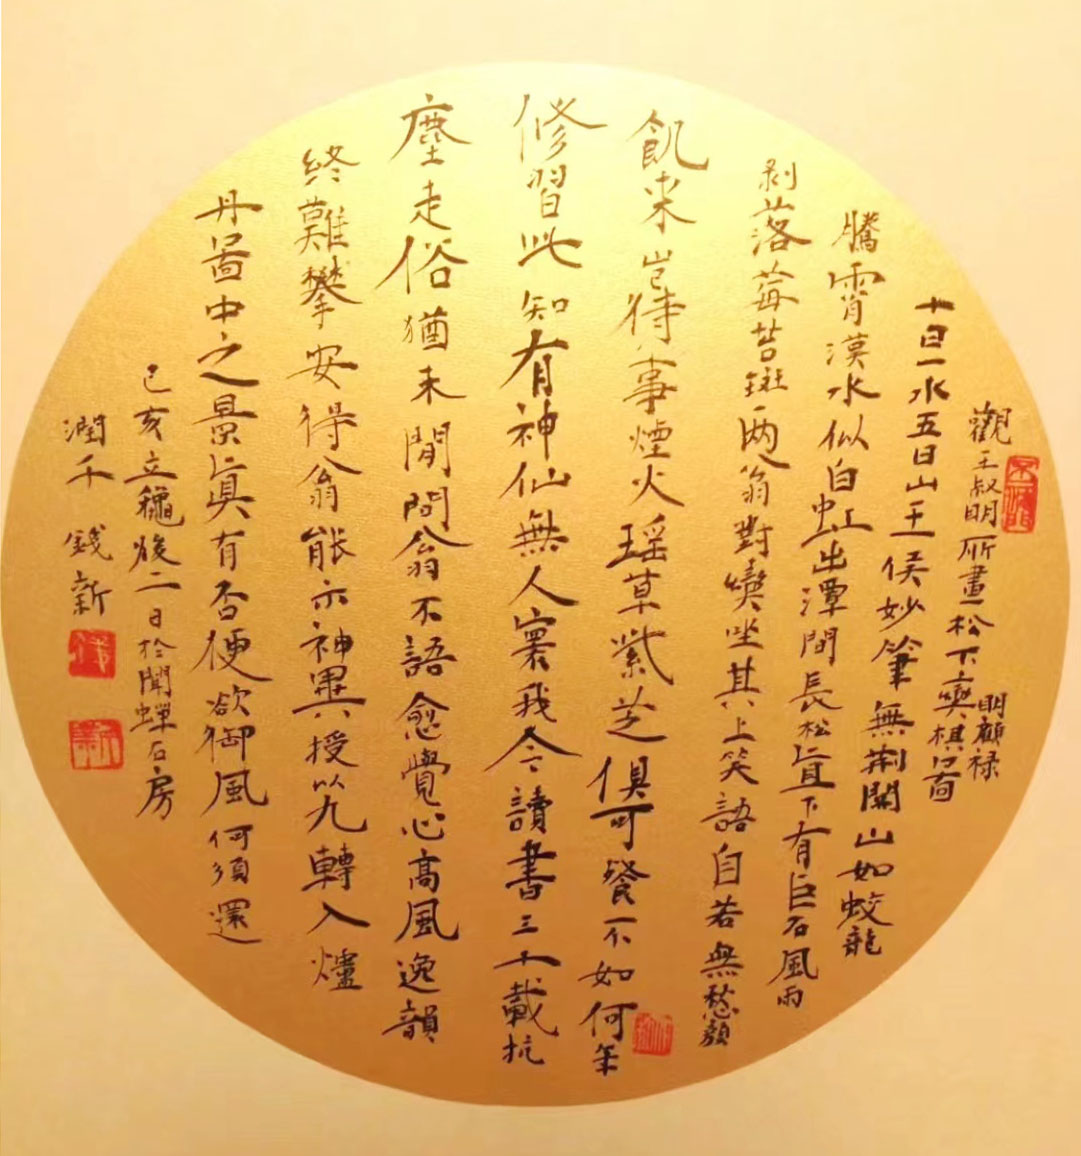 觀王叔明所畫松下奕棋啚
明顧禄
十日一水五日山王侯妙筆無荆關山如蛟龍
騰霄漠水似白虹出潭間長松㫖下有巨石風雨
剥落莓苔斑两翁對奕坐其上笑語自若無愁顏
飢来豈待事煙火瑶草紫芝俱可餐不如何年
修習此知有神仙無人寰我今讀書三千載抗
塵走俗猶未閒問翁不語愈覺心高風逸韻
終難攀安得翁能示神異授以九轉入爐
丹啚中之景㫖真有否便欲御風何須還
己亥立龝後二日於聞蟬石房
潤千錢新